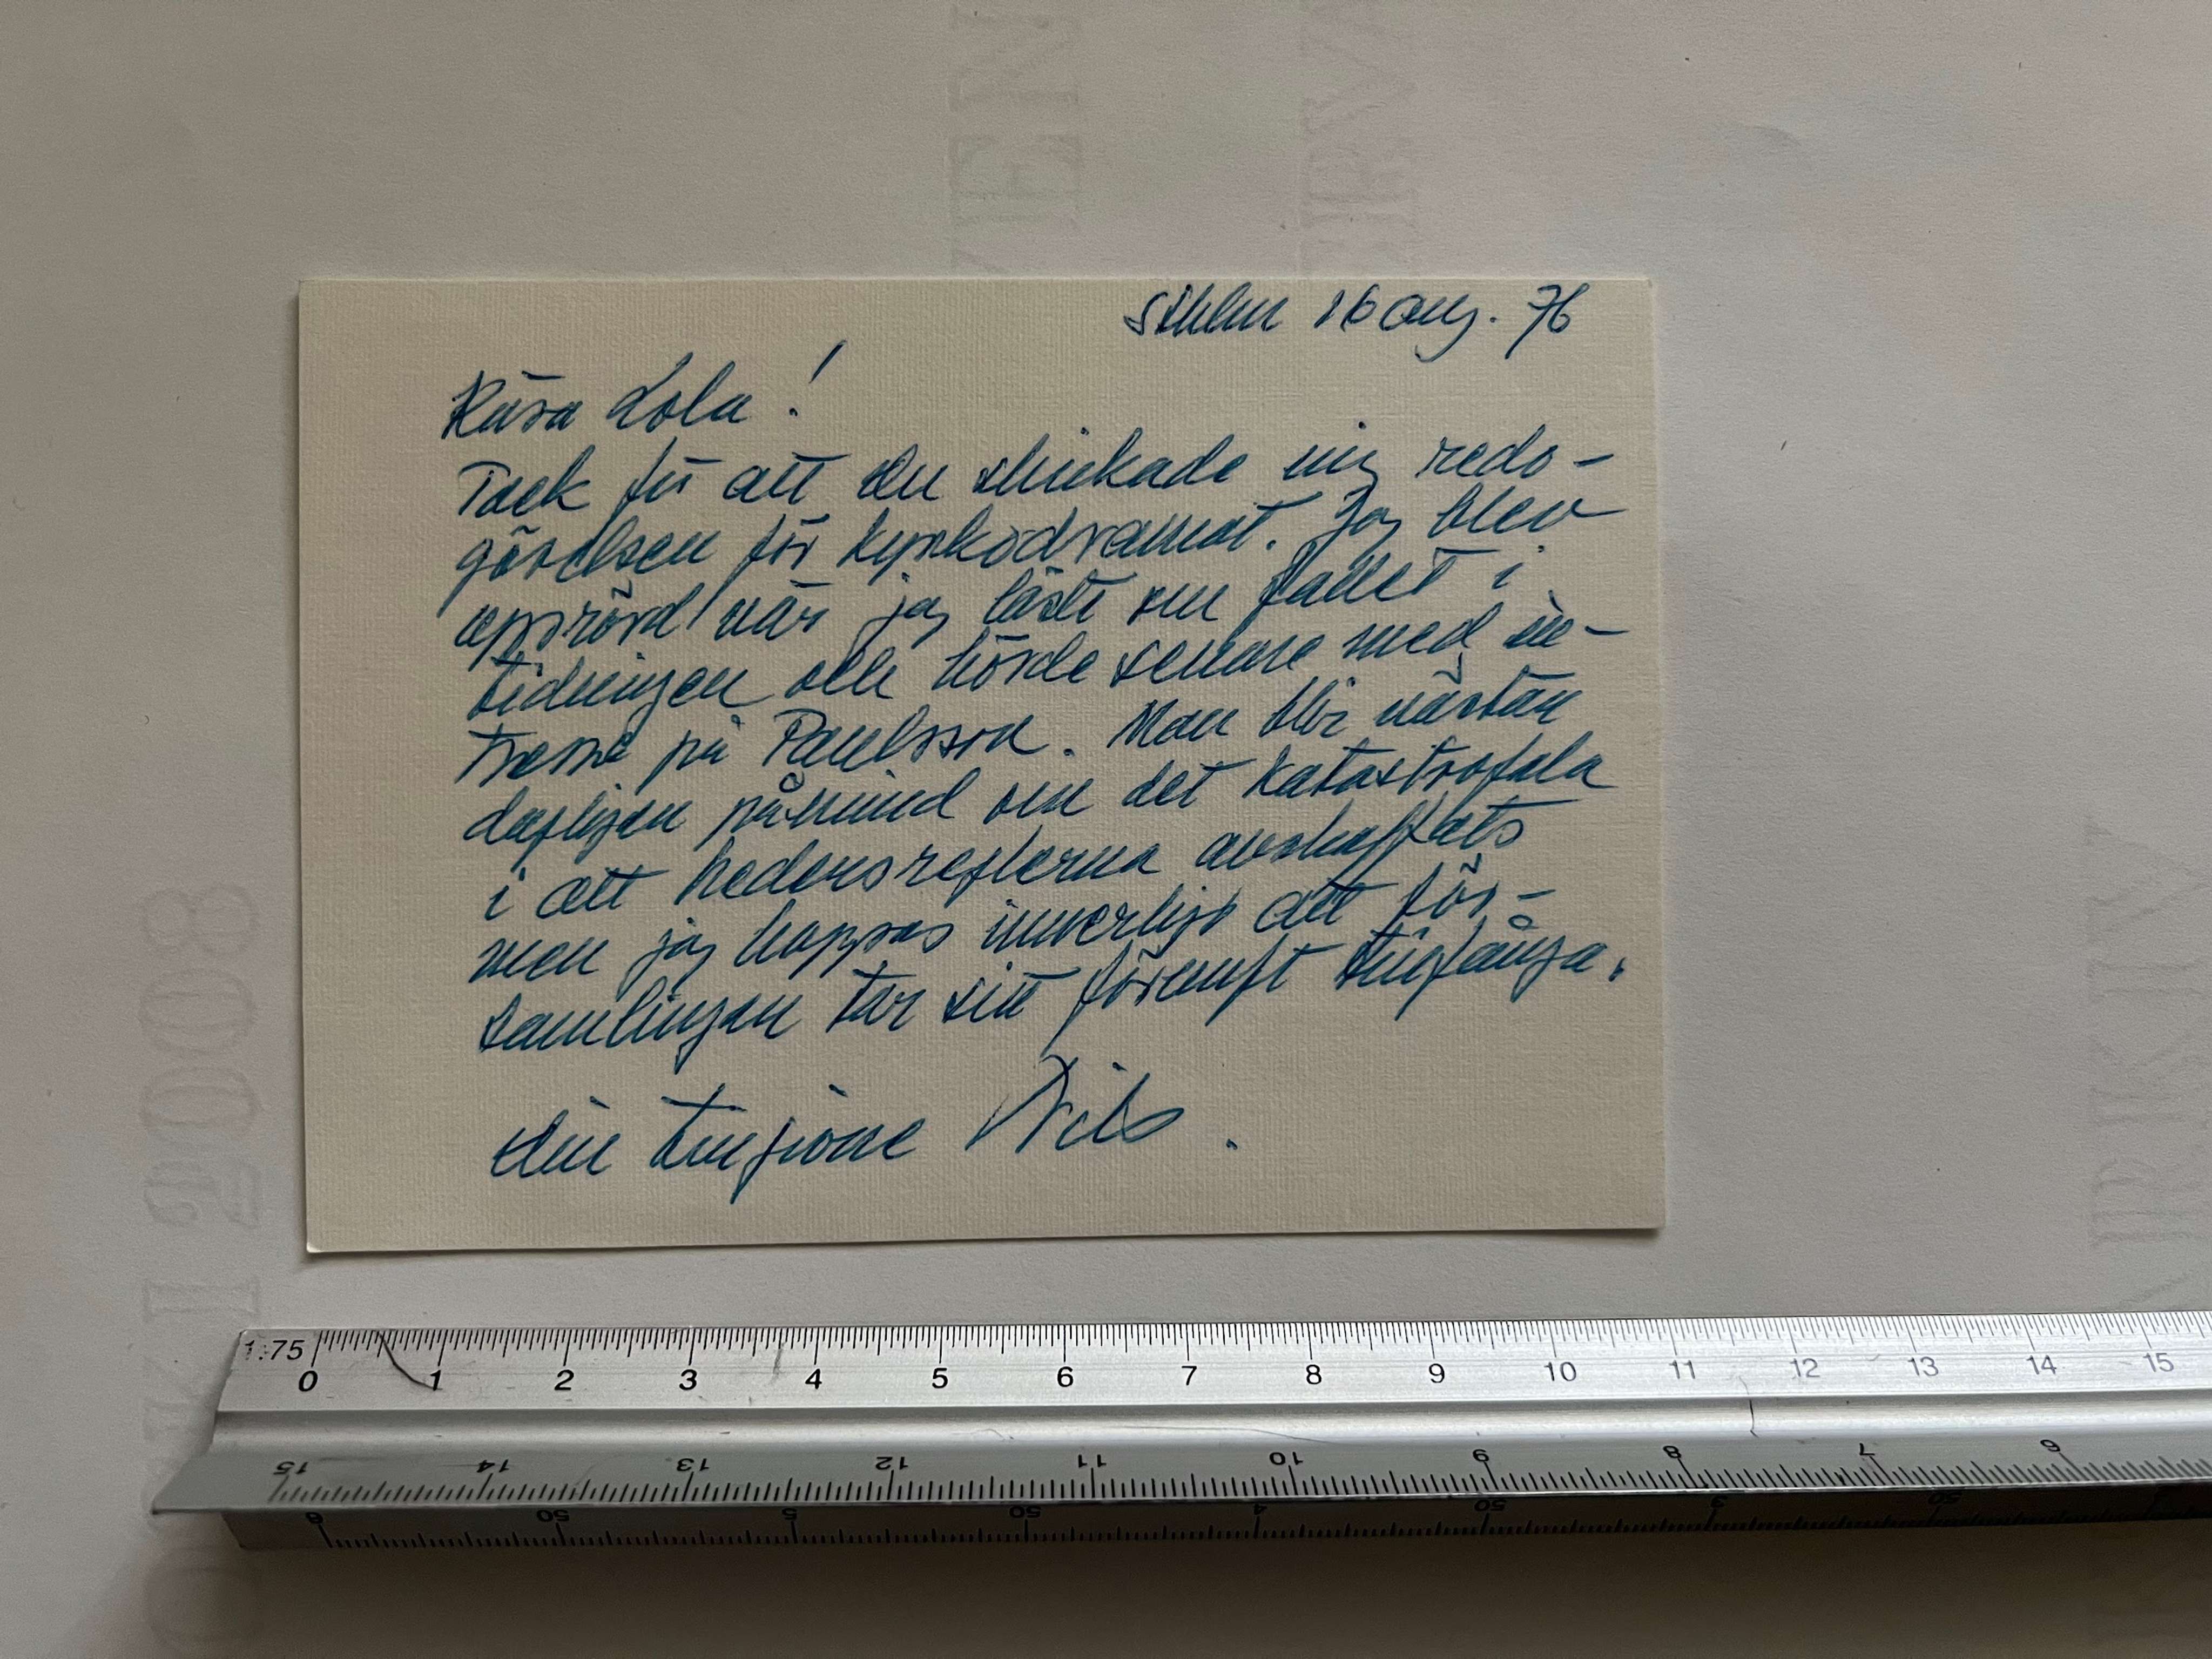 Sthlm 16 aug. 76
Kära Lola!
Tack för att du skickade mig redo-
görelsen för kyrkodramat. Jag blev
upprörd när jag läste om fallet i
tidningen och hörde senare med in-
tresse på Paulsson. Man blir nästan
dagligen påmind om det katastrofala
i att hedersreglerna avskaffats
men jag hoppas innerligt att för-
samlingen tar sitt förnuft tillfånga.
din tillgivne Nils.
1:75
0 1 2 3 4 5 6 7 8 9 10 11 12 13 14 15
15 14 13 12 11 10 9 8 7 6
6 50 5 50 4 50 3 50